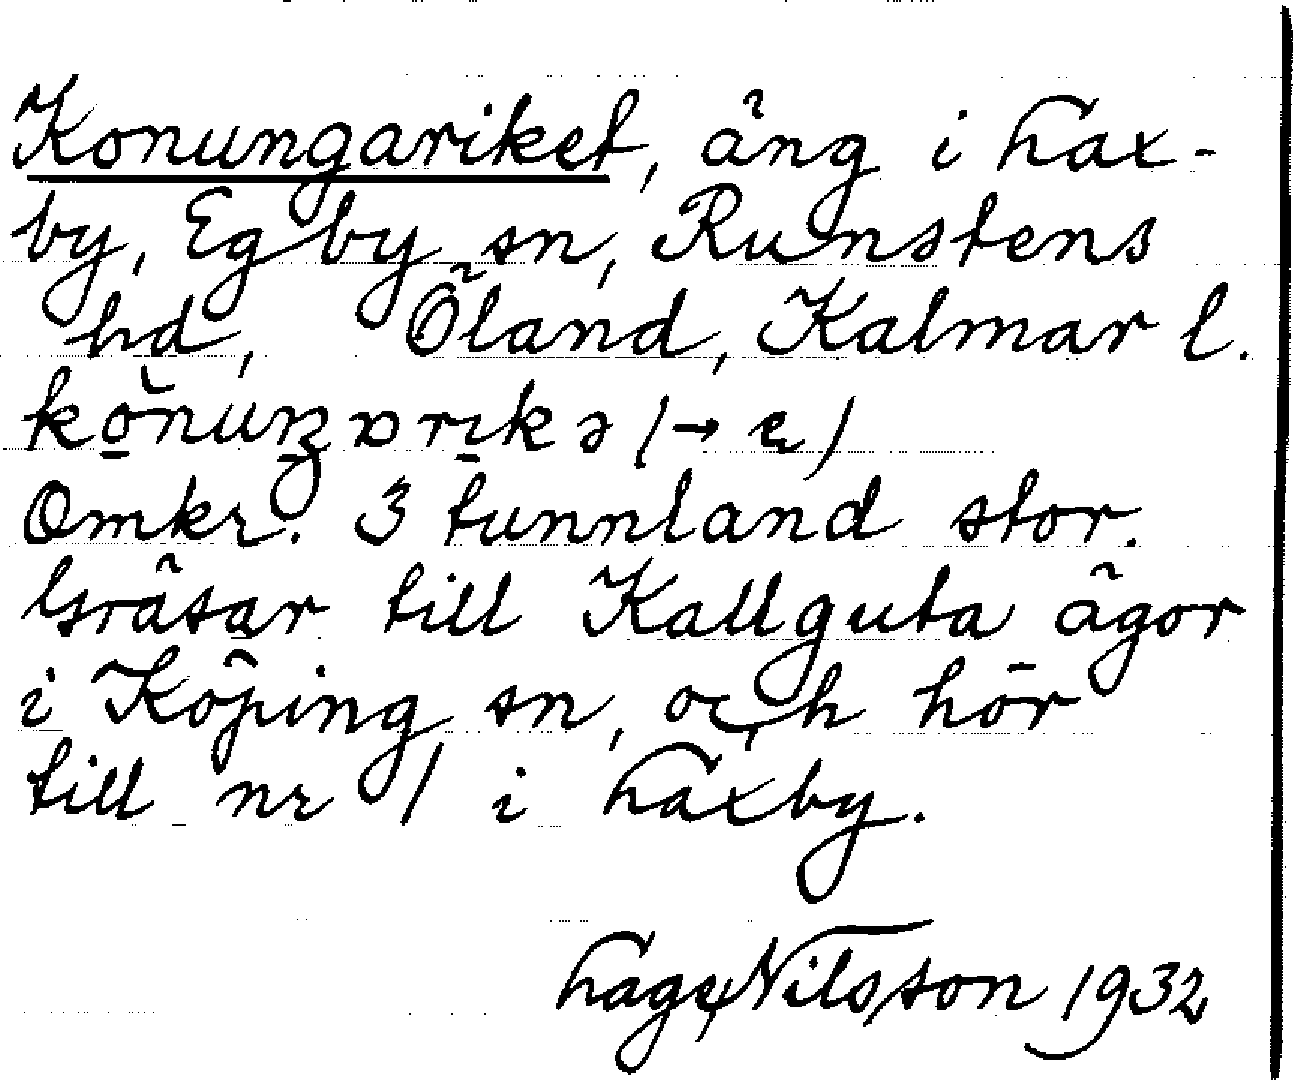 Konungariket, äng i Tax-
by, Egby sn, Runstens
hd, Öland, Kalmar l.
ko̲nuŋ̲ɒri̲kə (→ ε)
Omkr. 3 tunnland stor.
Gräsar till Kallguta ägor
i Köping sn, och hör
till nr 1 i Taxby.
Tage Nilsson 1932